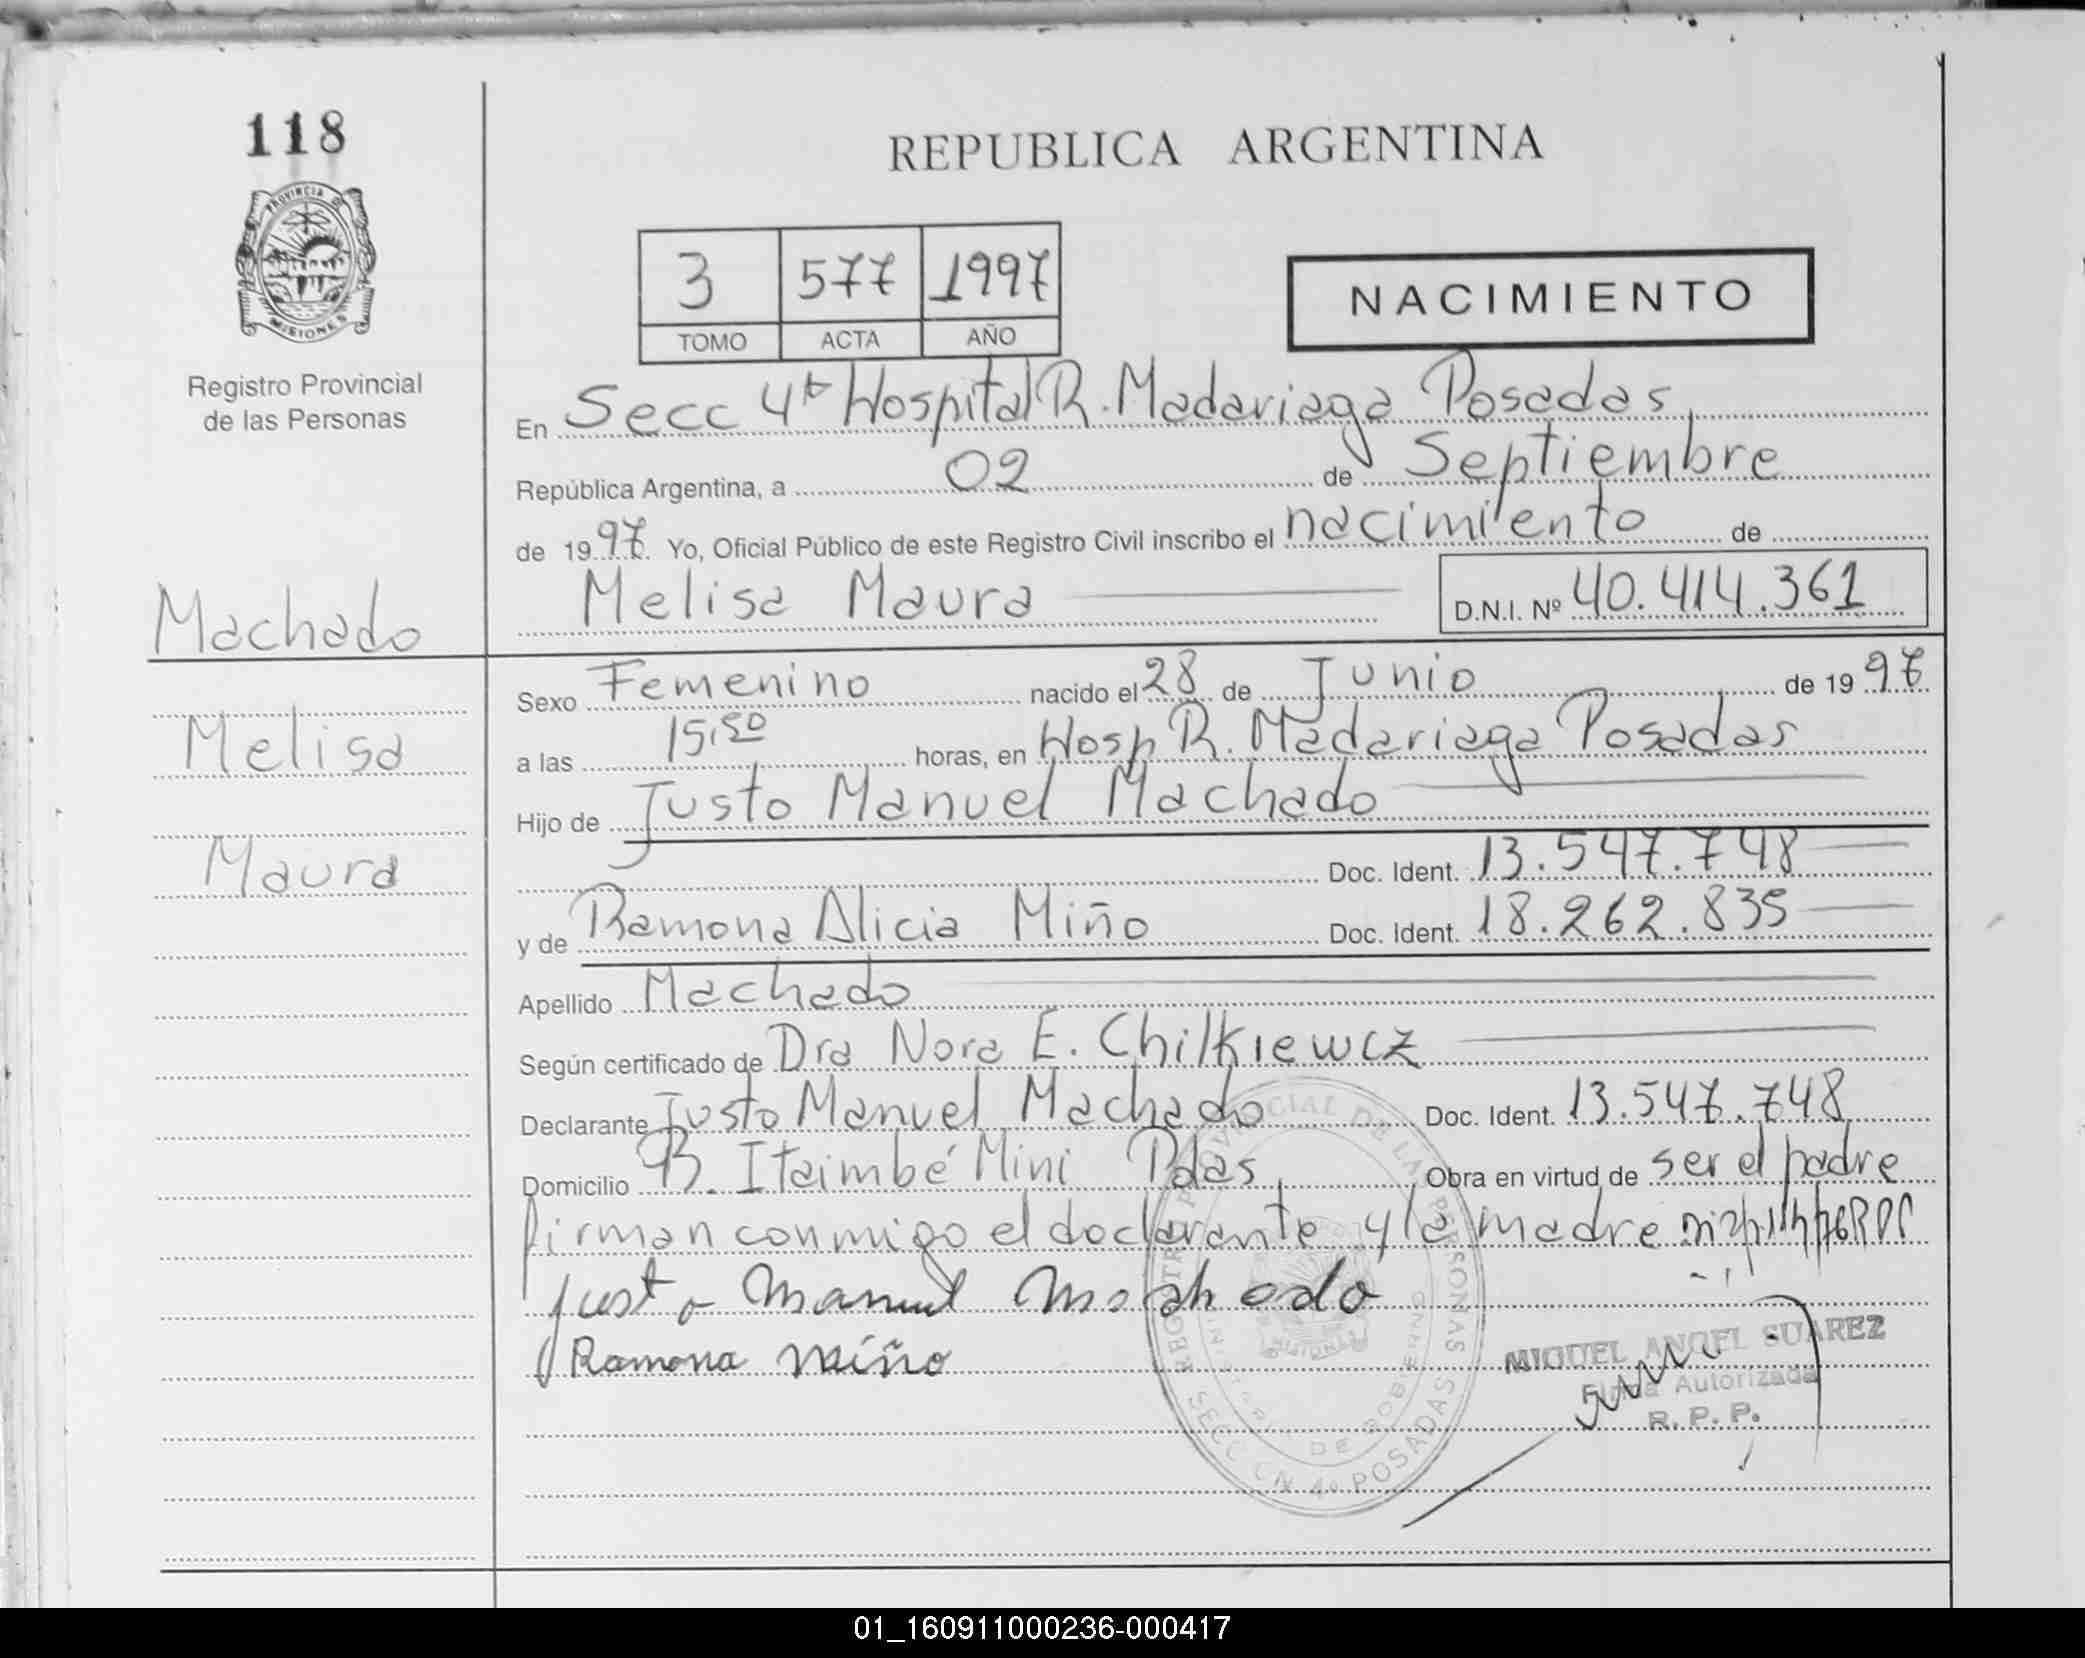 118
PROVINCIA D
MISIONES
Registro Provincial
de las Personas
Machado
Melisa
Maura
REPUBLICA ARGENTINA
3 577 1997
TOMO ACTA AÑO
NACIMIENTO
En Secc 4ta Hospital R. Madariaga Posadas
República Argentina, a 02 de Septiembre
de 1997. Yo, Oficial Público de este Registro Civil inscribo el nacimiento de
Melisa Maura D.N.I. Nº 40.414.361
Sexo Femenino nacido el 28 de Junio de 1997
a las 15,50 horas, en Hosp R. Madariaga Posadas
Hijo de Justo Manuel Machado
Doc. Ident. 13.547.748
y de Ramona Alicia Miño Doc. Ident. 18.262.835
Apellido Machado
Según certificado de Dra Nora E. Chilkiewcz
Declarante Justo Manuel Machado Doc. Ident. 13.547.748
Domicilio B. Itaimbé Mini Pdas Obra en virtud de ser el padre
firman conmigo el declarante y la madre
Justo Manuel Machado
Ramona Miño
MIGUEL ANGEL SUAREZ
Firma Autorizada
R. P. P.
01_160911000236-000417